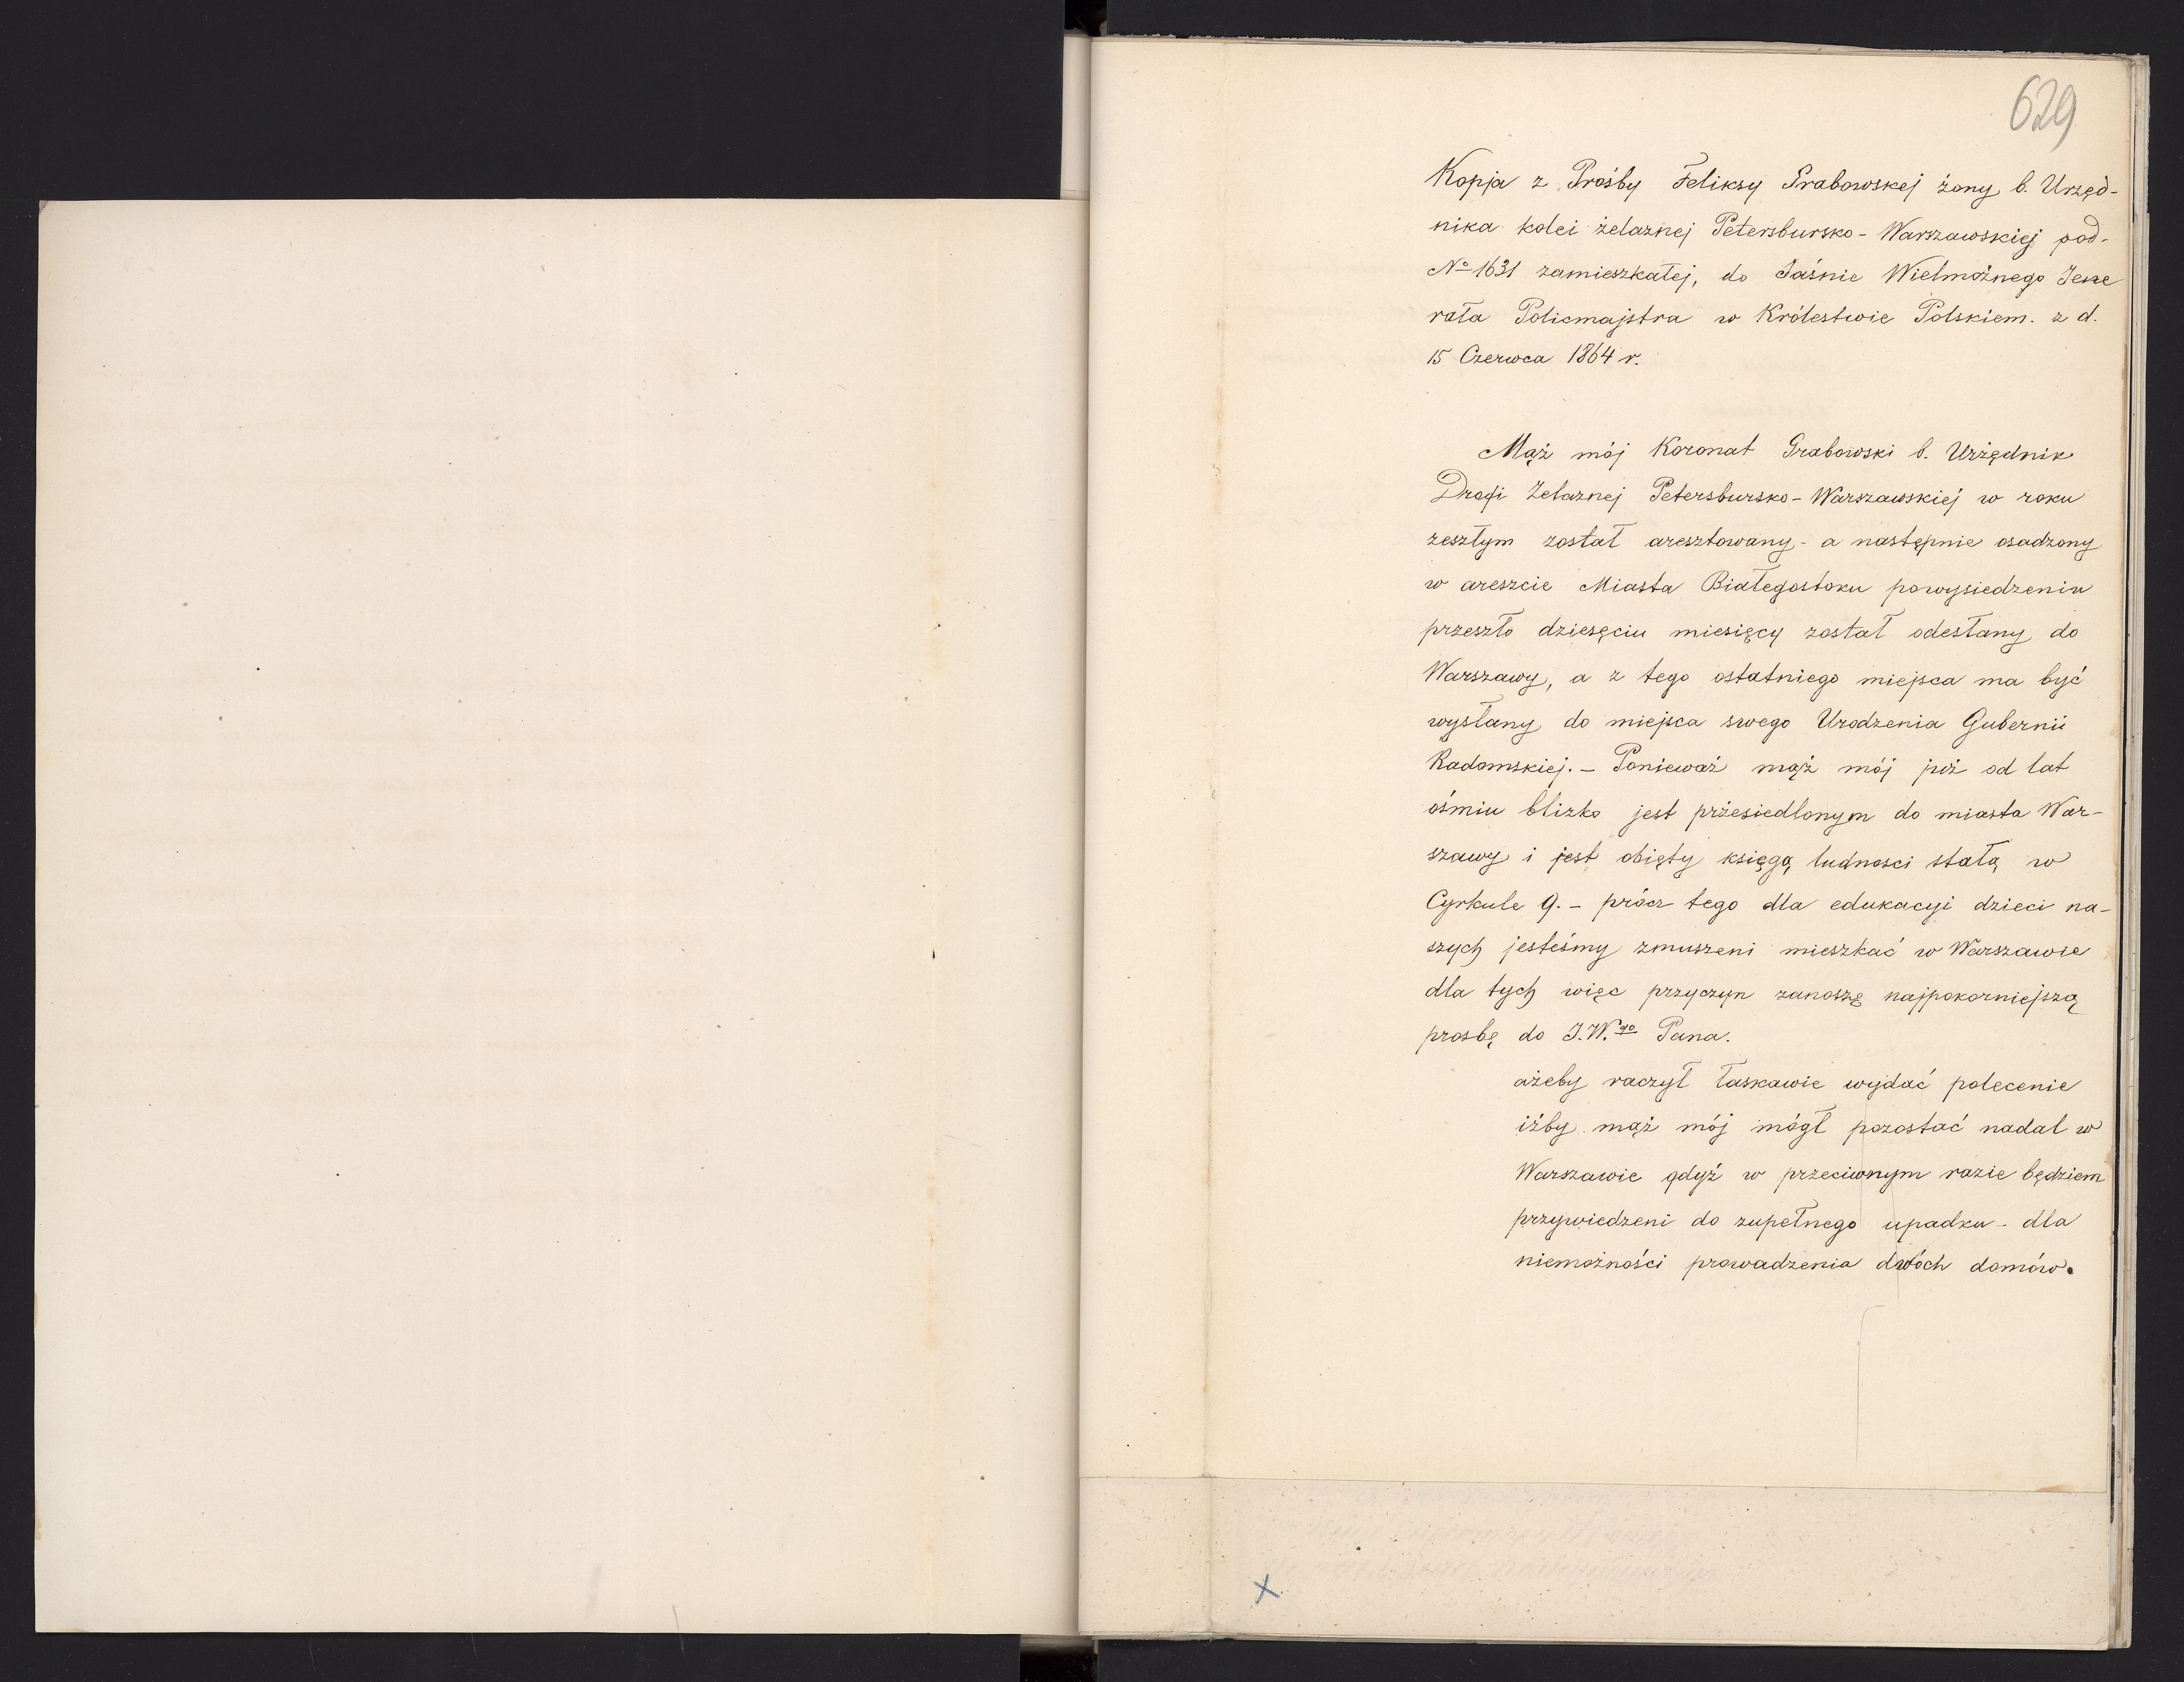 629
Kopja z Prośby Feliksy Grabowskej żony b. Urzęd-
nika kolei żelaznej Petersbursko-Warszawskiej pod-
№ 1631 zamieszkałej, do Jaśnie Wielmożnego Jene
rała Policmajstra w Królestwie Polskiem. z d.
15 Czerwca 1864 r.
Mąż mój Koronat Grabowski b. Urzędnik
Drogi Żelaznej Petersbursko-Warszawskiéj w roku
zeszłym został aresztowany - a następnie osadzony
w areszcie Miasta Białegostoku powysiedzeniu
przeszło dziesęciu miesięcy został odesłany do
Warszawy, a z tego ostatniego miejsca ma być
wysłany do miejsca swego Urodzenia Gubernii
Radomskiej. - Ponieważ mąż mój już od lat
ośmiu blizko jest przesiedlonym do miasta War-
szawy i jest obięty księgą ludnosci stałą w
Cyrkule 9. - prócz tego dla edukacyi dzieci na-
szych jesteśmy zmuszeni mieszkać w Warszawie
dla tych więc przyczyn zanoszę najpokorniejszą
prosbę do J.W.go Pana.
ażeby raczył łaskawie wydać polecenie
iżby mąż mój mógł pozostać nadal w
Warszawie gdyż w przeciwnym razie będziem
przywiedzeni do zupełnego upadku - dla
niemożności prowadzenia dwóch domów.
x